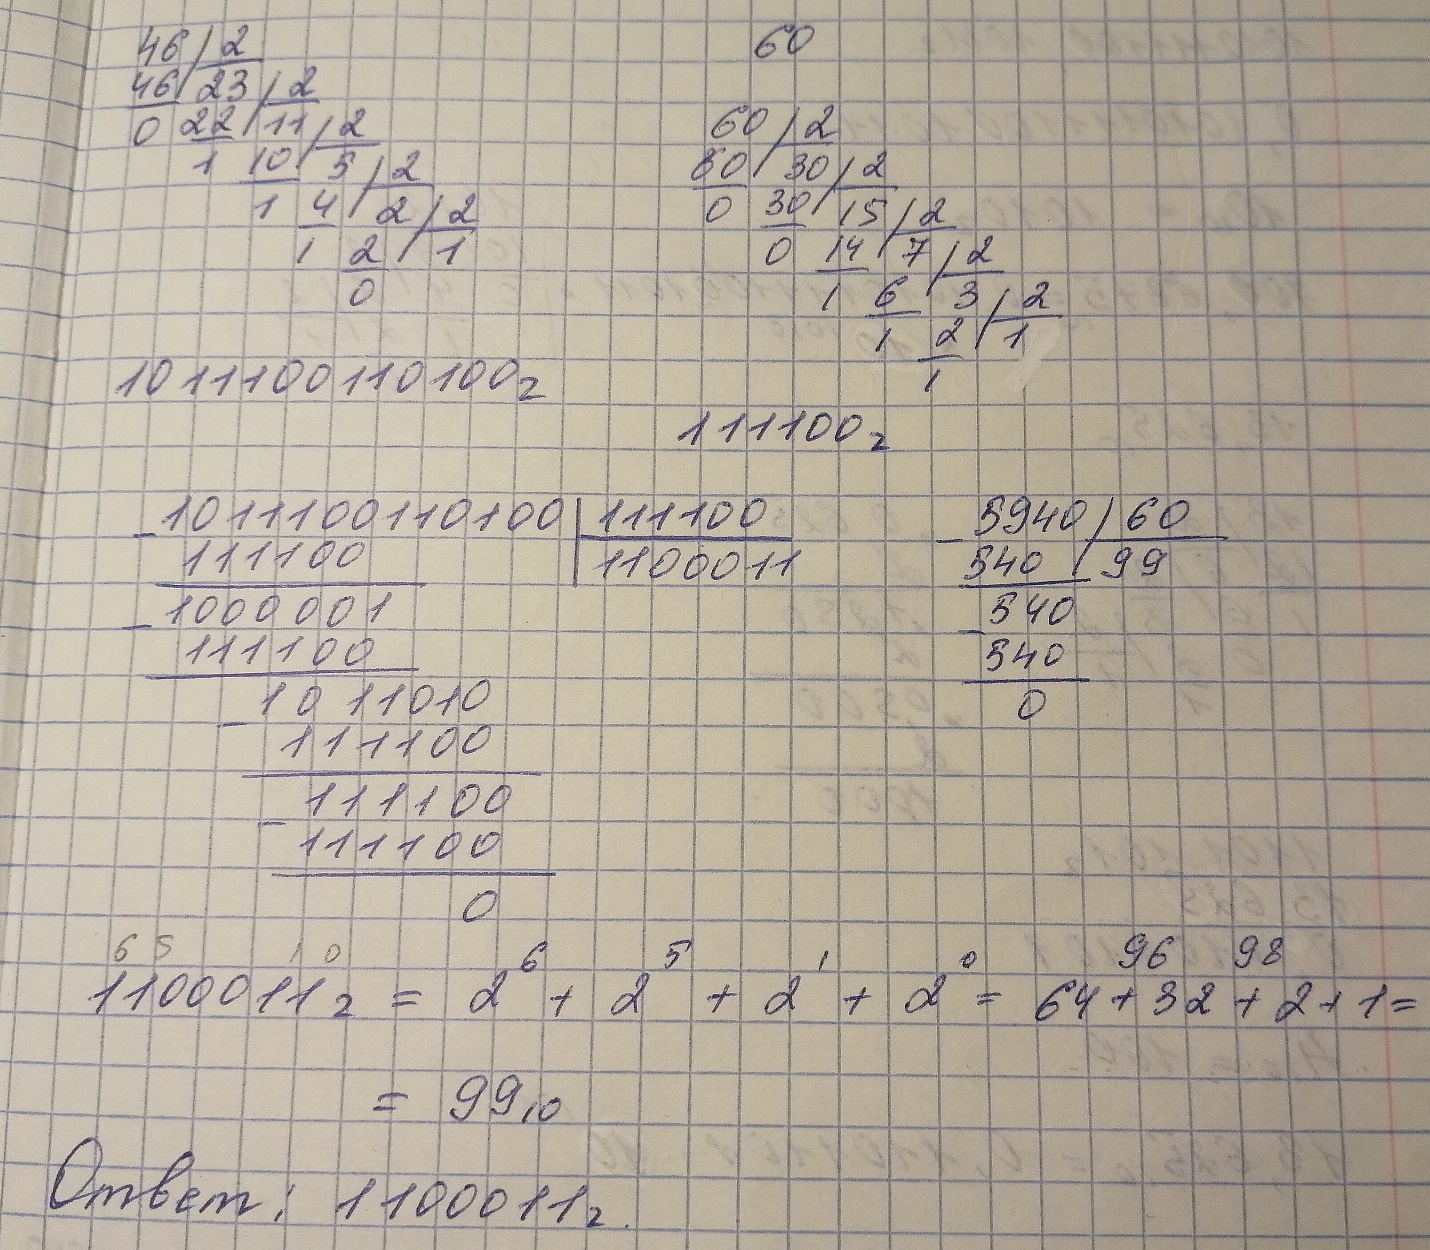 46 2
46 23 2
0 22 11 2
1 10 5 2
1 4 2 2
1 2 1
0
1011100110100₂
60
60 2
60 30 2
0 30 15 2
0 14 7 2
1 6 3 2
1 2 1
1
111100₂
-1011100110100 | 111100
111100 1100011
-1000001
111100
-1011010
111100
-111100
111100
0
-5940 60
540 99
-540
540
0
6 5 1 0 96 98
1100011₂ = 2⁶ + 2⁵ + 2¹ + 2⁰ = 64 + 32 + 2 + 1 =
= 99₁₀
Ответ: 1100011₂.